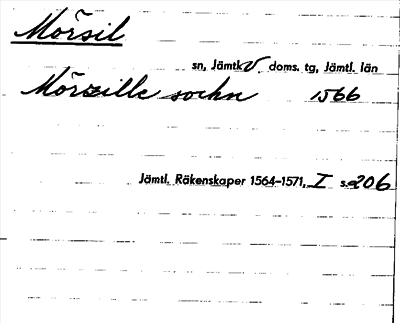 Mörsil
sn, Jämtk V. doms. tg, Jämtl. län
Mörzille sochn 1566
Jämtl. Räkenskaper 1564-1571, I s. 206